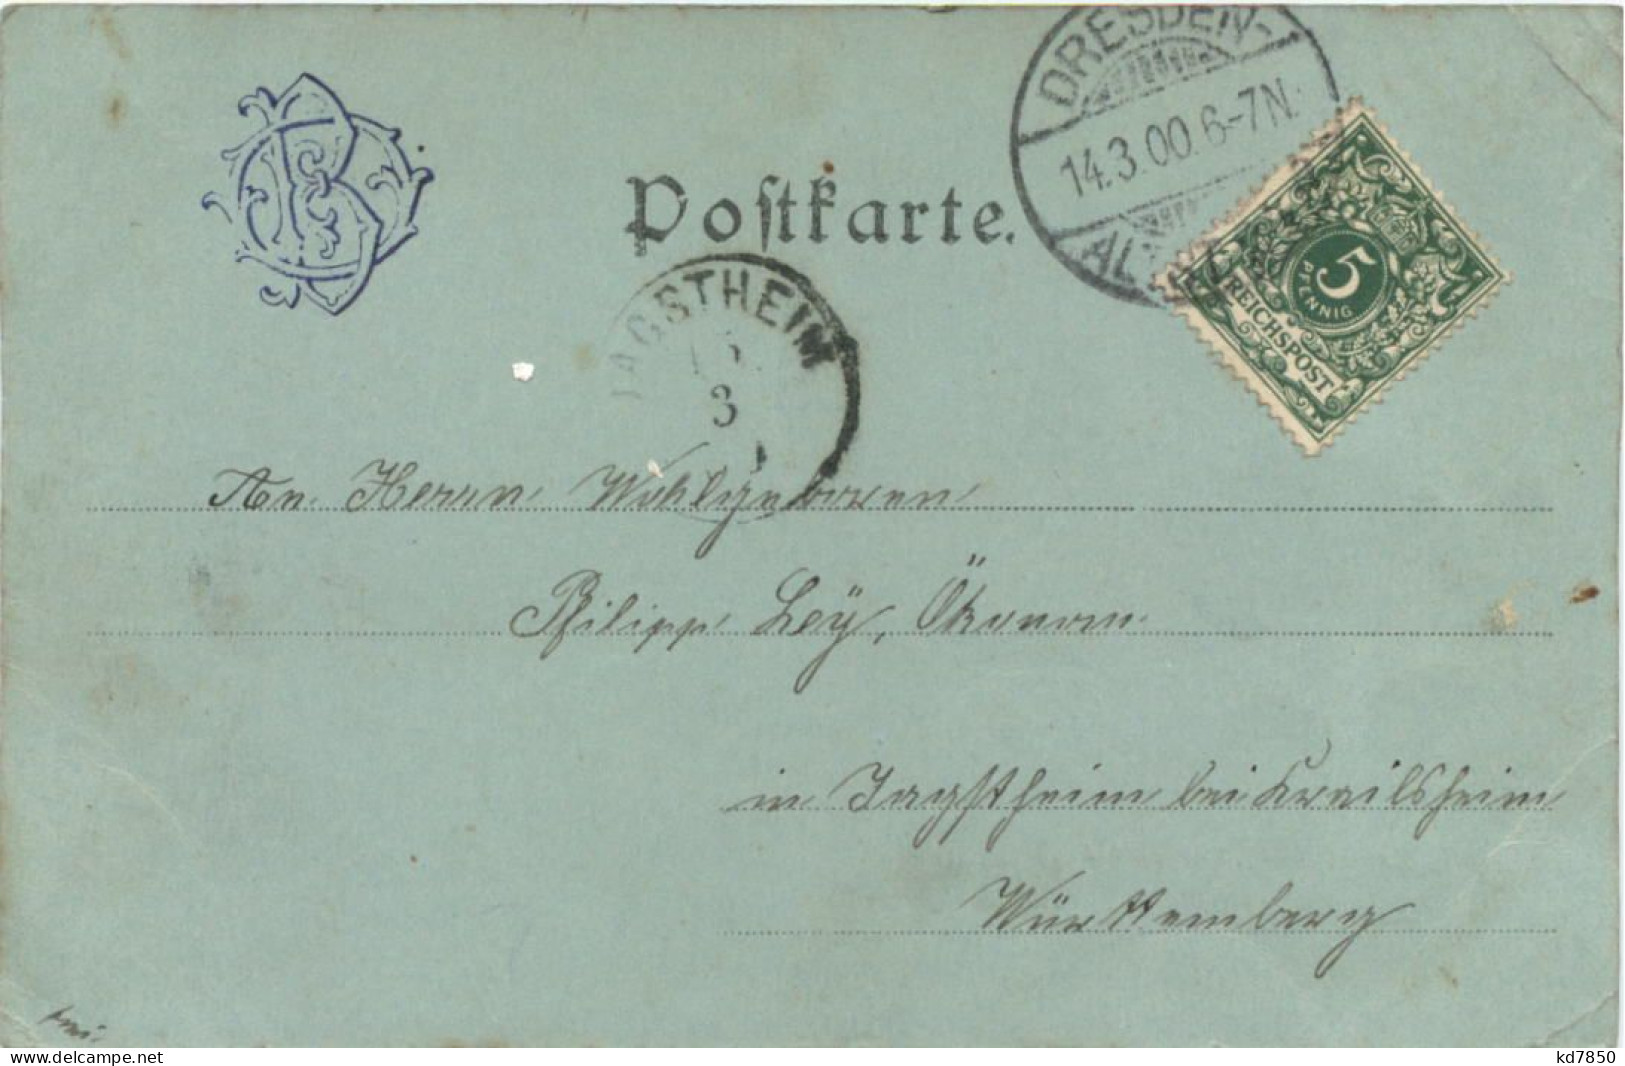 DRESDEN-
14.3.00.6-7N.
Postkarte.
5
PFENNIG
REICHSPOST
JAGSTHEIM
3
An Herrn Wohlgeboren
Philipp Ley, Ökonom.
in Jagstheim bei Krailsheim
Württemberg
www.delcampe.net
kd7850